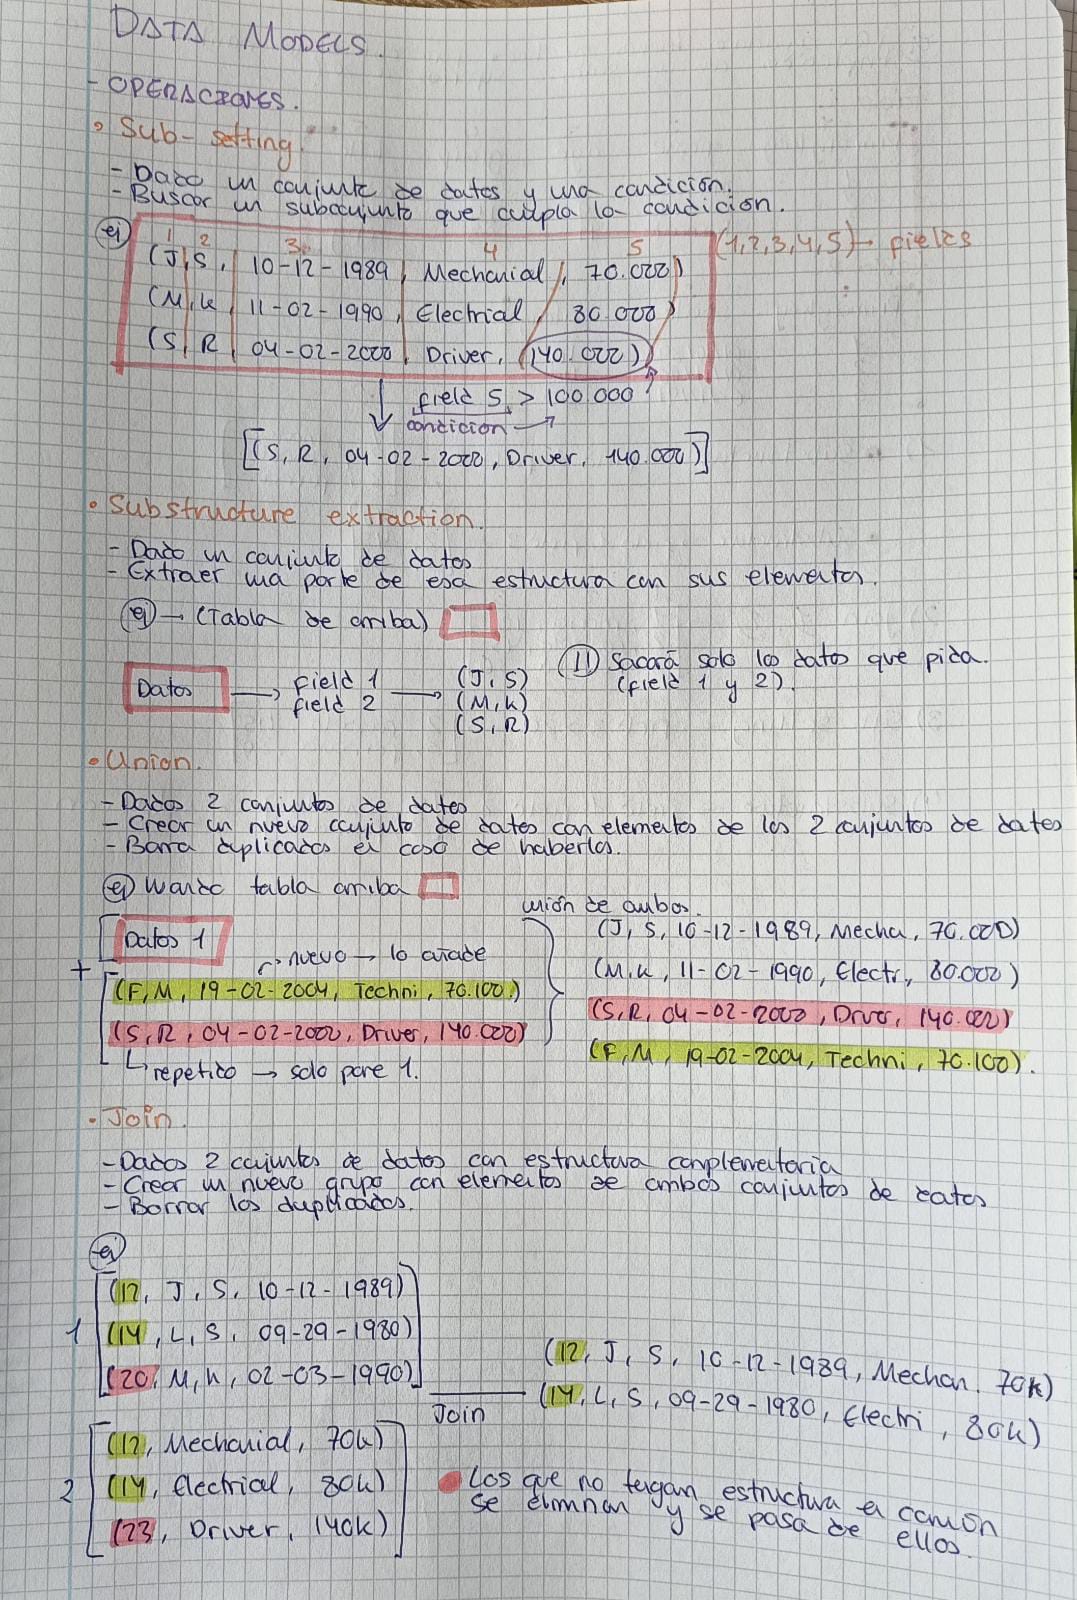 DATA MODELS.
- OPERACIONES.
• Sub-setting.
- Dado un conjunto de datos y una condición.
- Buscar un subconjunto que cumpla la condición.
ej
1 2 3 4 5
(1,2,3,4,5) → fields
(J, S, 10-12-1989, Mechanial, 70.000)
(M, K, 11-02-1990, Electrial, 80.000)
(S, R, 04-02-2000, Driver, (140.000))
↓ field 5 > 100.000
condición →
[(S, R, 04-02-2000, Driver, 140.000)]
• Substructure extraction.
- Dado un conjunto de datos
- Extraer una parte de esa estructura con sus elementos.
ej → (Tabla de arriba)
Datos → field 1 field 2 → (J, S)
(M, K)
(S, R)
(!!) Sacará solo los datos que pida.
(field 1 y 2).
• Union.
- Dados 2 conjuntos de datos
- Crear un nuevo conjunto de datos con elementos de los 2 conjuntos de datos
- Borra duplicados en caso de haberlos.
ej Usando tabla arriba
Datos 1
+
nuevo → lo añade
(F, M, 19-02-2004, Techni, 70.100)
(S, R, 04-02-2000, Driver, 140.000)
repetido → solo pone 1.
unión de ambos.
(J, S, 10-12-1989, Mecha, 70.000)
(M, K, 11-02-1990, Electr., 80.000)
(S, R, 04-02-2000, Driver, 140.000)
(F, M, 19-02-2004, Techni, 70.100).
• Join.
- Dados 2 conjuntos de datos con estructura complementaria
- Crear un nuevo grupo con elementos de ambos conjuntos de datos
- Borrar los duplicados.
ej
1
(12, J, S, 10-12-1989)
(14, L, S, 09-29-1980)
(20, M, K, 02-03-1990)
2
(12, Mechanial, 70k)
(14, Electrical, 80k)
(23, Driver, 140k)
Join
(12, J, S, 10-12-1989, Mechan. 70k)
(14, L, S, 09-29-1980, Electri, 80k)
Los que no tengan estructura en común
se eliminan y se pasa de
ellos.